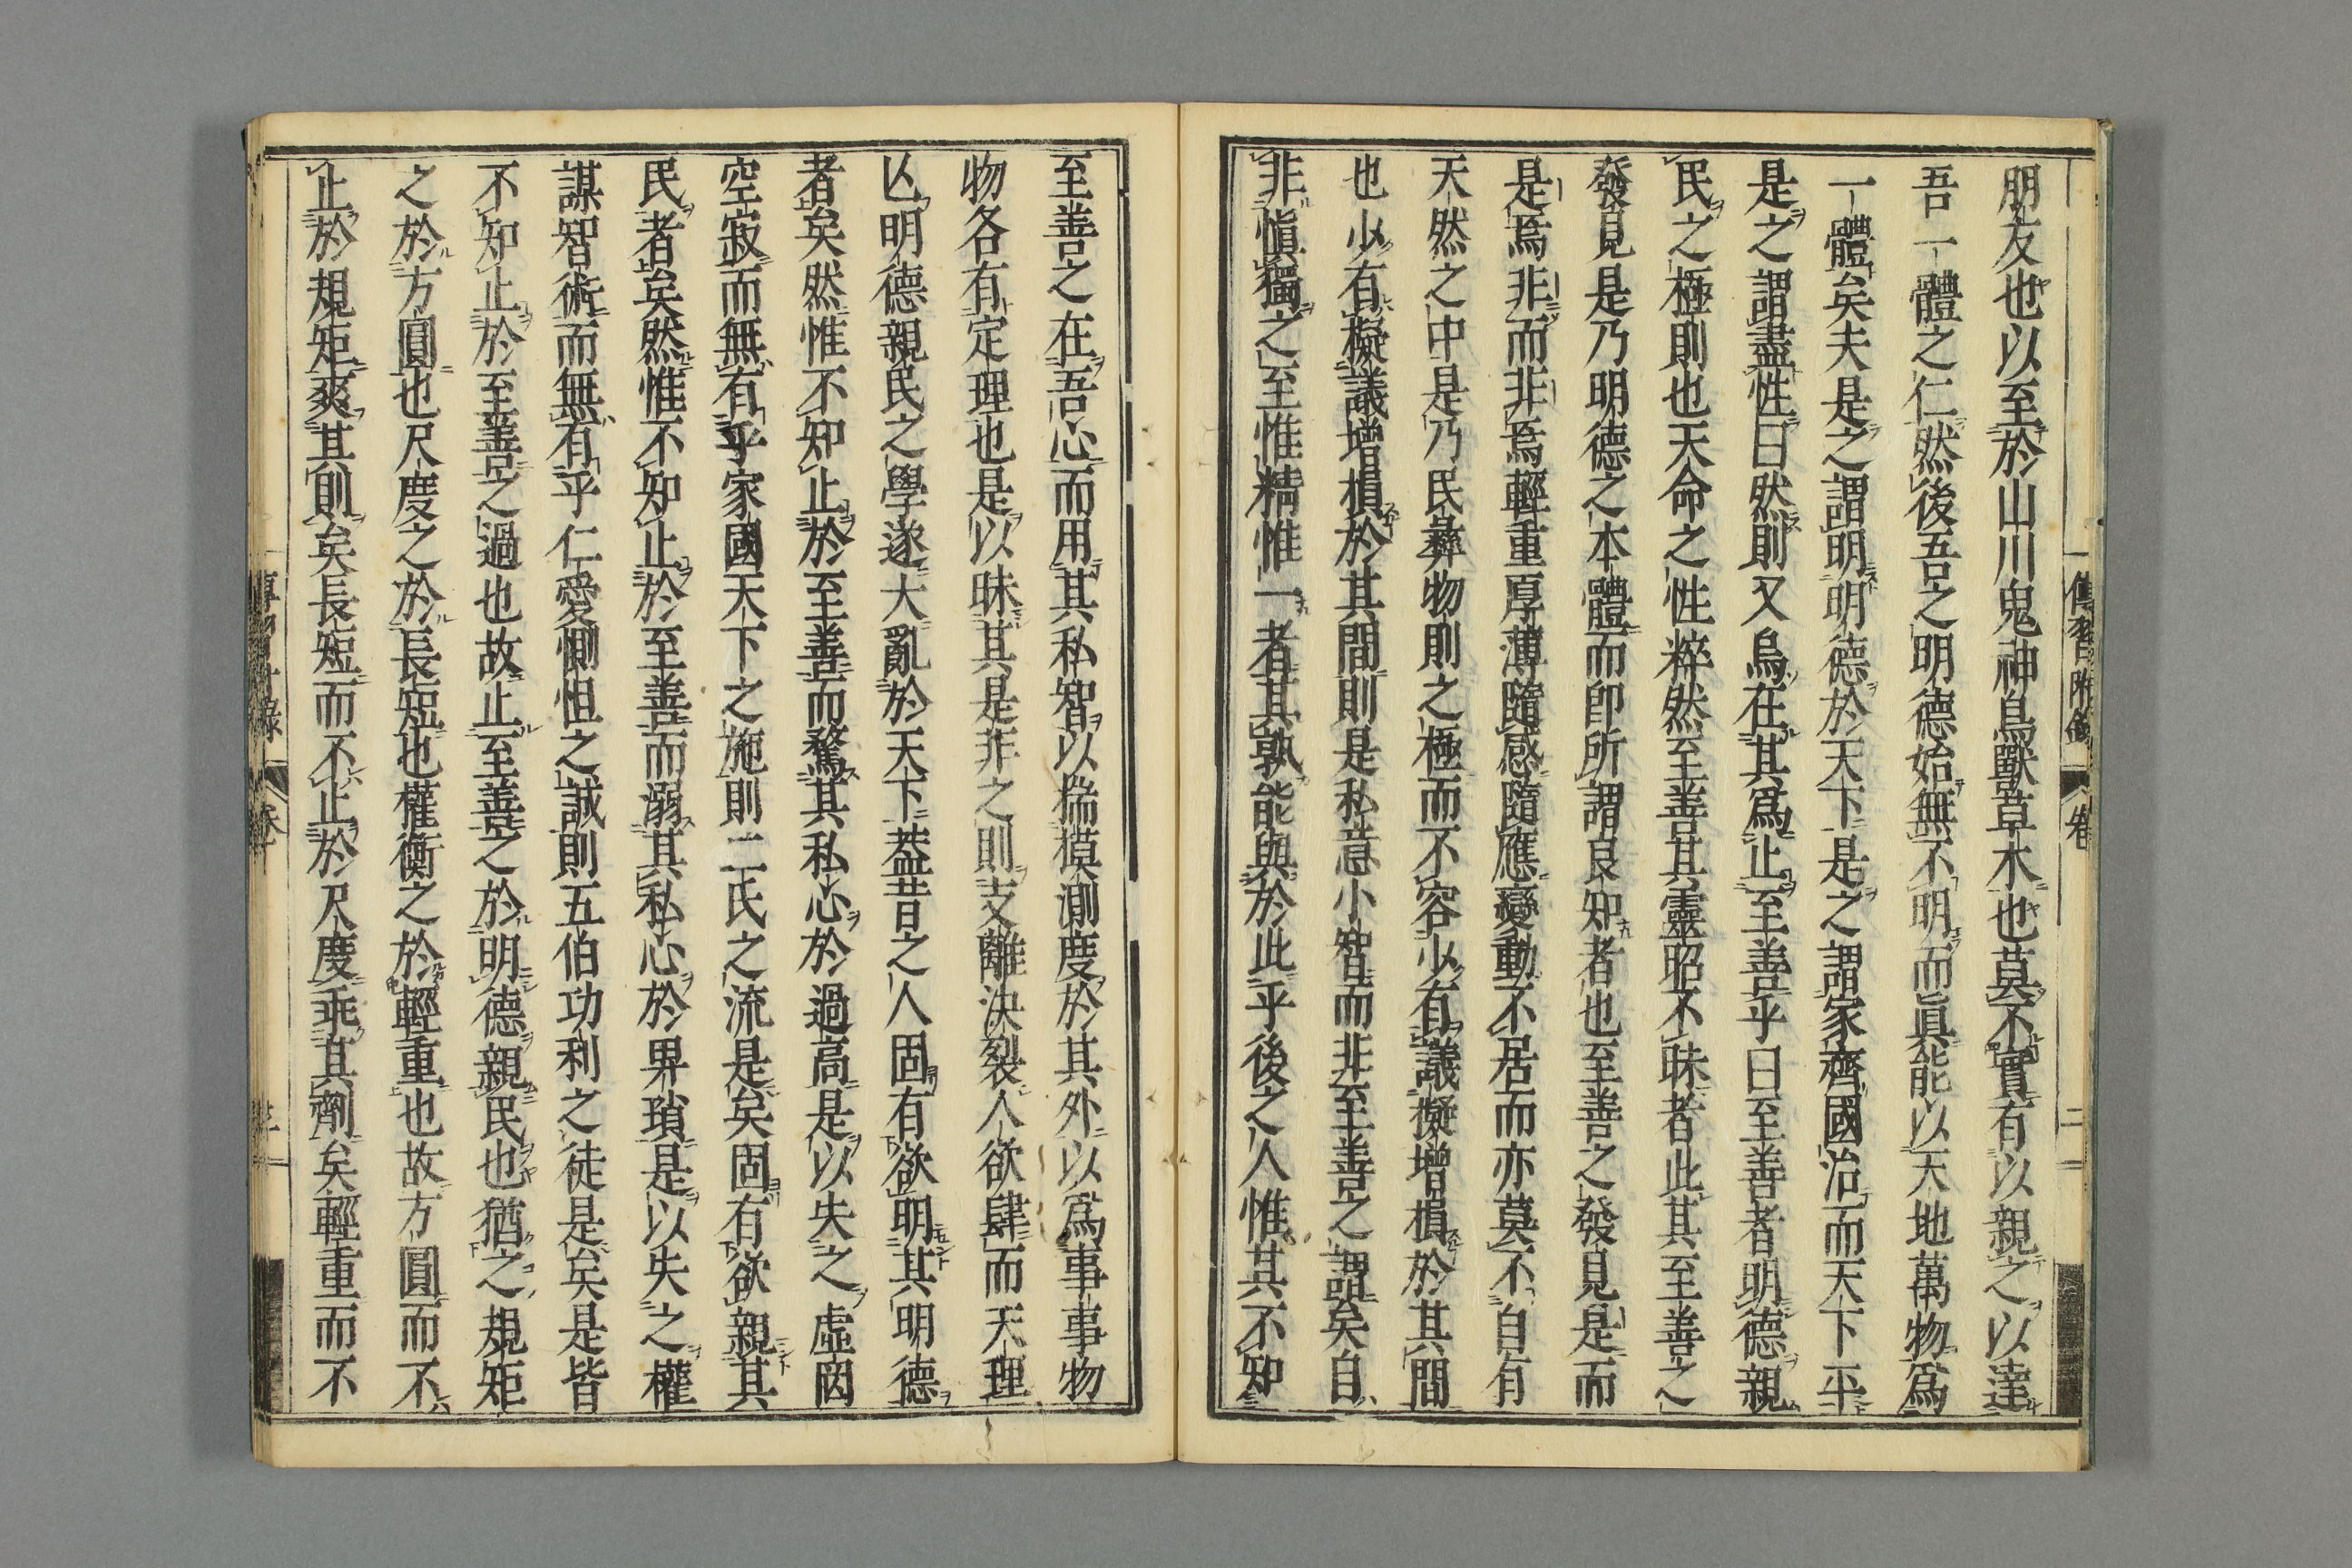 朋友也以至於山川鬼神鳥獸草木也莫不實有以親之以達
吾一體之仁然後吾之明德始無不明而眞能以天地萬物爲
一體矣夫是之謂明明德於天下是之謂家齊國治而天下平
是之謂盡性曰然則又烏在其爲止至善乎曰至善者明德親
民之極則也天命之性粹然至善其靈昭不昧者此其至善之
發見是乃明德之本體而卽所謂良知者也至善之發見是而
是焉非而非焉輕重厚薄隨感隨應變動不居而亦莫不自有
天然之中是乃民彝物則之極而不容少有議擬增損於其間
也少有擬議增損於其間則是私意小智而非至善之謂矣自
非愼獨之至惟精惟一者其孰能與於此乎後之人惟其不知
至善之在吾心而用其私智以揣摸測度於其外以爲事事物
物各有定理也是以昧其是非之則支離決裂人欲肆而天理
亾明德親民之學遂大亂於天下葢昔之人固有欲明其明德
者矣然惟不知止於至善而騖其私心於過高是以失之虛罔
空寂而無有乎家國天下之施則二氏之流是矣固有欲親其
民者矣然惟不知止於至善而溺其私心於畀瑣是以失之權
謀智術而無有乎仁愛惻怛之誠則五伯功利之徒是矣是皆
不知止於至善之過也故止至善之於明德親民也猶之規矩
之於方圓也尺度之於長短也權衡之於輕重也故方圓而不
止於規矩爽其則矣長短而不止於尺度乖其劑矣輕重而不
傳習附錄
卷
二